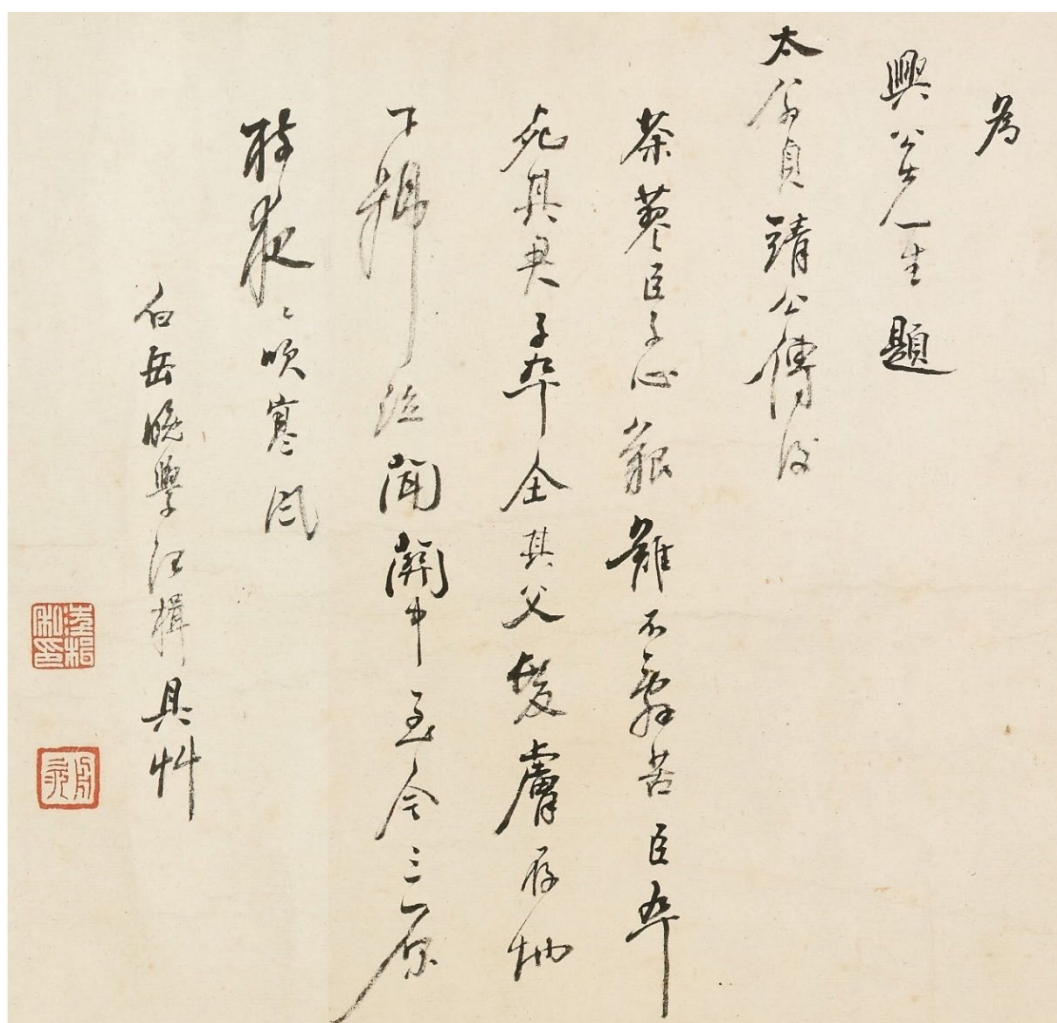 為
興公先生題
太翁貞靖公傳後
茶蓼臣子心艱難不辭苦臣卒
死其君子卒全其父髮膚存地
下號泣聞關中至今三原
樹夜〻吹寒風
白岳晚學汪楫具艸
汪楫私印